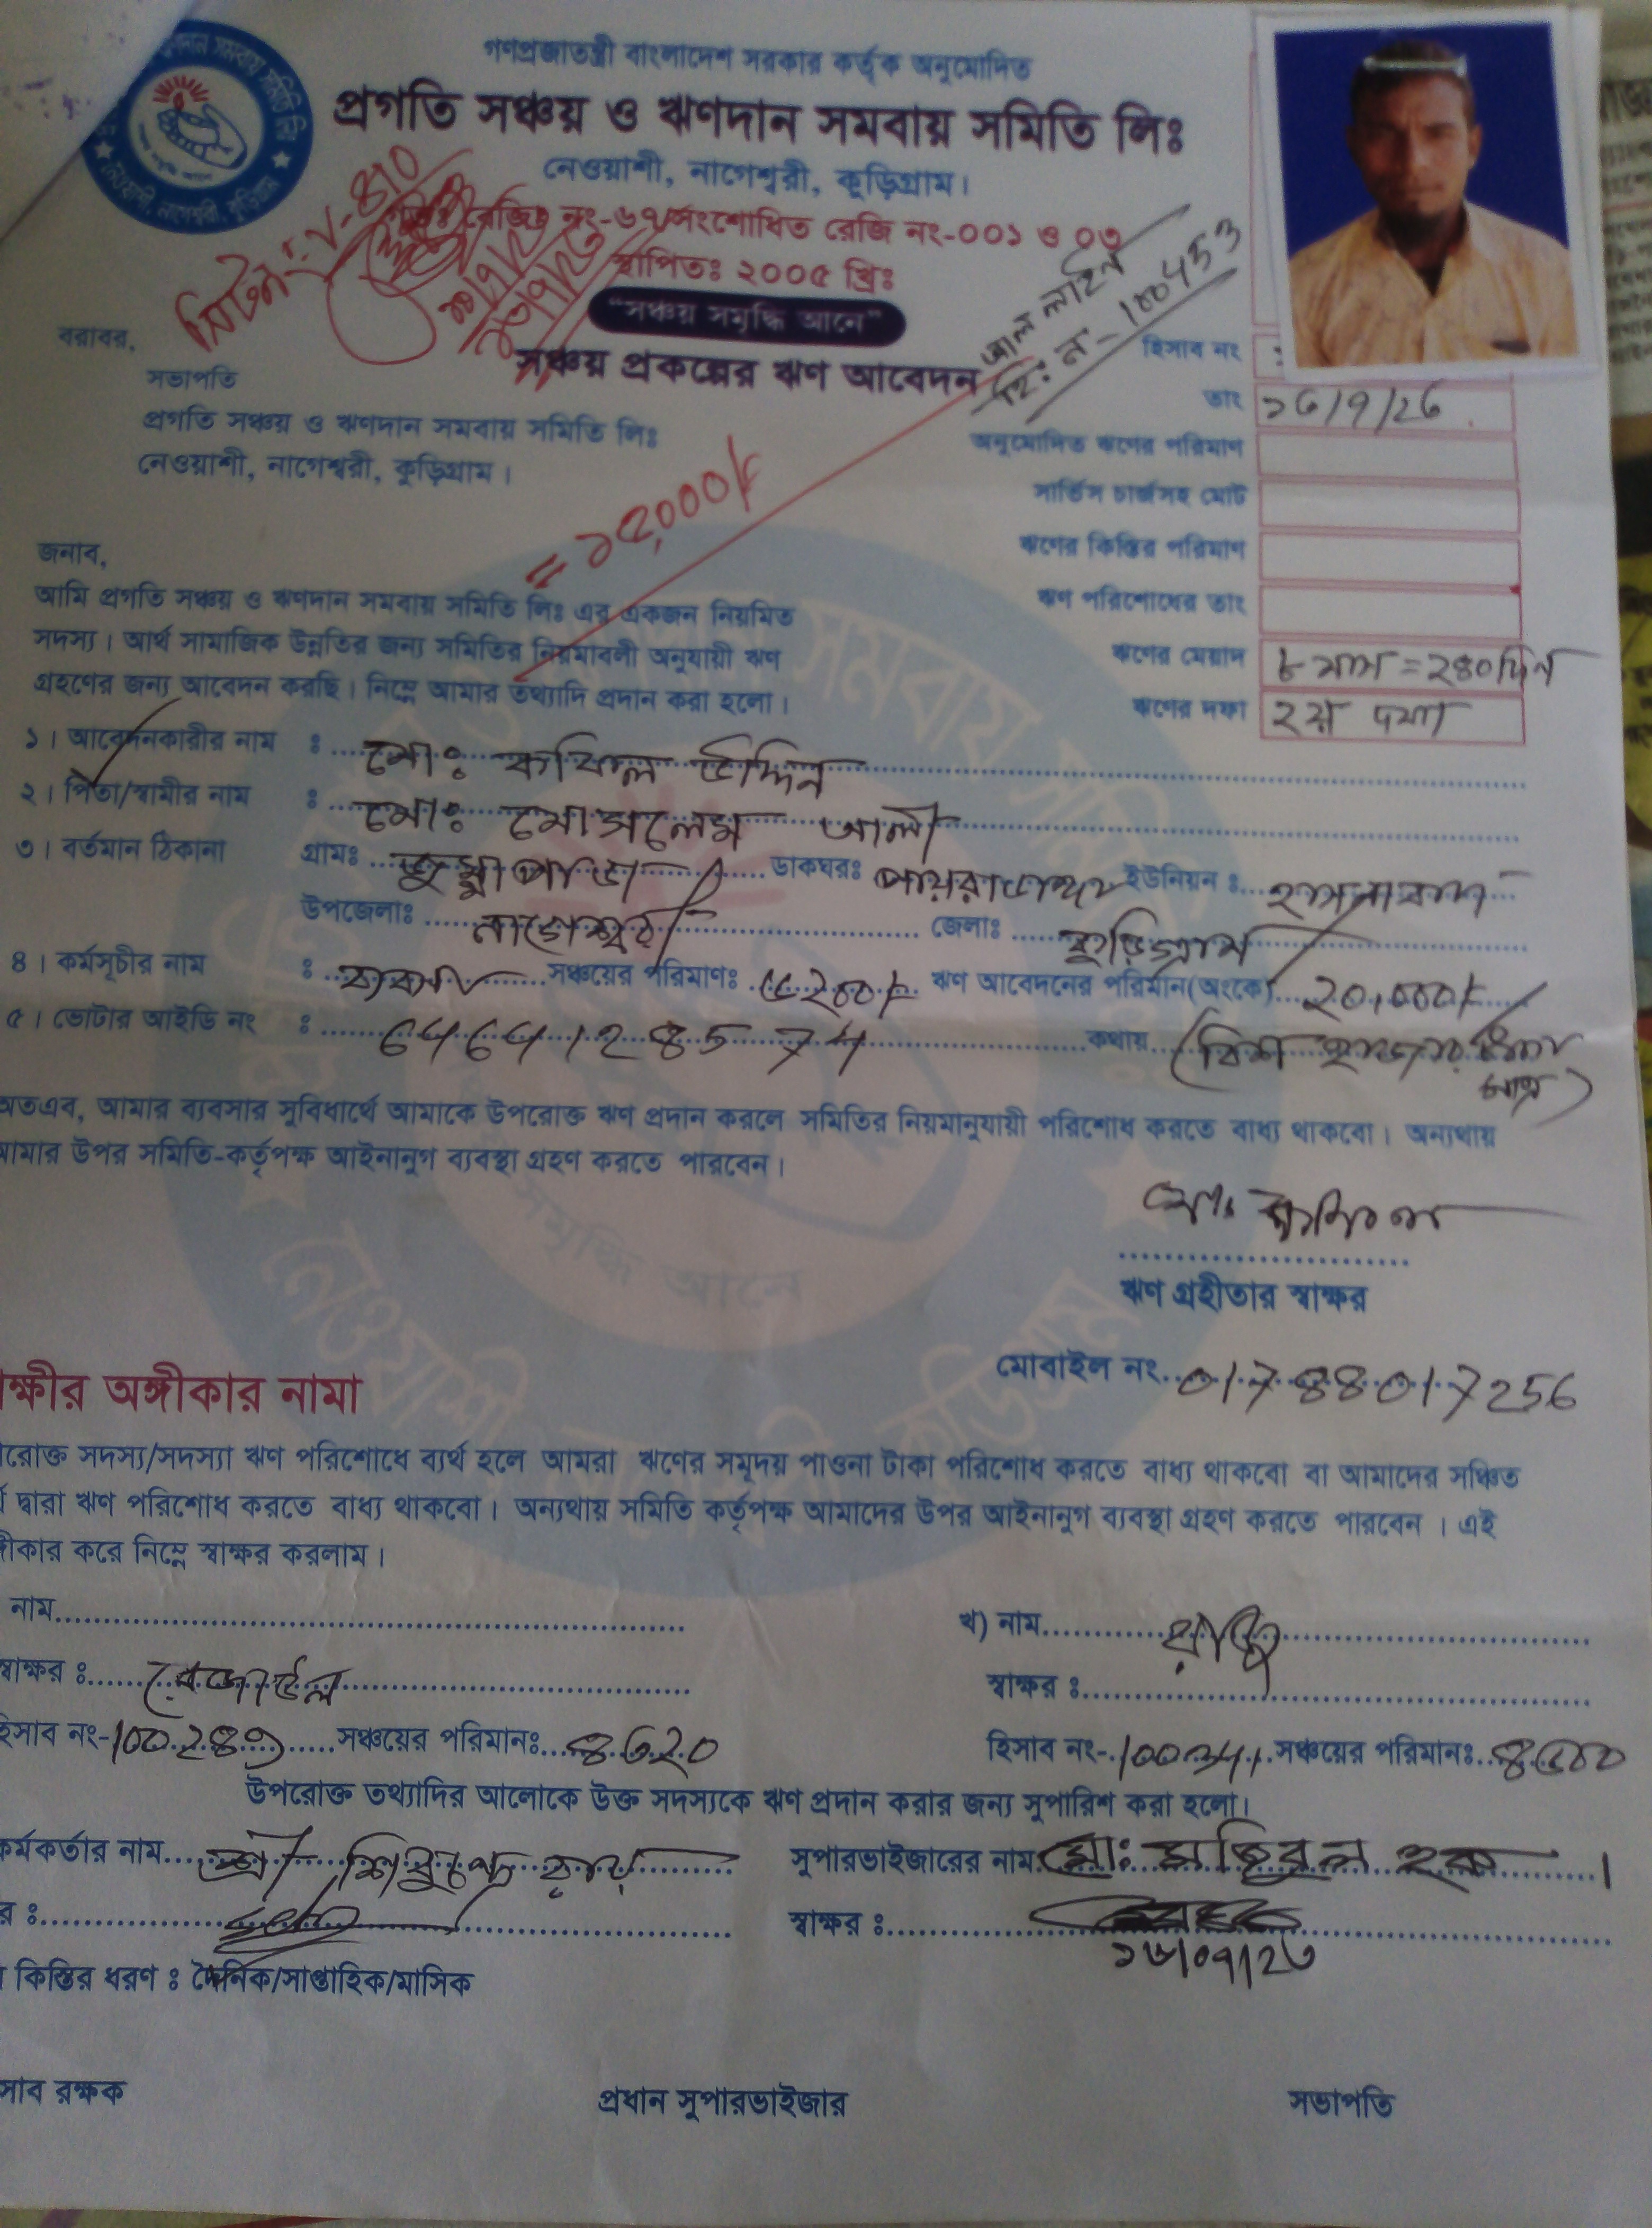 গণপ্রজাতন্ত্রী বাংলাদেশ সরকার কর্তৃক অনুমোদিত
প্রগতি সঞ্চয় ও ঋণদান সমবায় সমিতি লিঃ
নেওয়াশী, নাগেশ্বরী, কুড়িগ্রাম।
রেজিঃ নং-৬৭/সংশোধিত রেজি নং-০০১ ও ০৩
স্থাপিতঃ ২০০৫ খ্রিঃ
"সঞ্চয় সমৃদ্ধি আনে"
সঞ্চয় প্রকল্পের ঋণ আবেদন
হিঃ নং- 100453
হিসাব নং :
তাং ১৩/৭/২৩
অনুমোদিত ঋণের পরিমাণ
সার্ভিস চার্জসহ মোট
ঋণের কিস্তির পরিমাণ
ঋণ পরিশোধের তাং
ঋণের মেয়াদ ৮ মাস = ২৪০ দিন
ঋণের দফা ২য় দফা
বরাবর,
সভাপতি
প্রগতি সঞ্চয় ও ঋণদান সমবায় সমিতি লিঃ
নেওয়াশী, নাগেশ্বরী, কুড়িগ্রাম।
= ১৫,০০০/-
জনাব,
আমি প্রগতি সঞ্চয় ও ঋণদান সমবায় সমিতি লিঃ এর একজন নিয়মিত
সদস্য। আর্থ সামাজিক উন্নতির জন্য সমিতির নিয়মাবলী অনুযায়ী ঋণ
গ্রহণের জন্য আবেদন করছি। নিম্নে আমার তথ্যাদি প্রদান করা হলো।
১। আবেদনকারীর নাম : মোঃ কাবিল উদ্দিন
২। পিতা/স্বামীর নাম : মোঃ মোসলেম আলী
৩। বর্তমান ঠিকানা গ্রামঃ ডাকঘরঃ পায়রাডাঙ্গা ইউনিয়ন : হাসনাবাদ
উপজেলাঃ নাগেশ্বরী জেলাঃ কুড়িগ্রাম
৪। কর্মসূচীর নাম : সঞ্চয়ের পরিমাণঃ ৫২০০/- ঋণ আবেদনের পরিমান(অংকে) ২০,০০০/-
৫। ভোটার আইডি নং : কথায় (বিশ হাজার টাকা মাত্র)
অতএব, আমার ব্যবসার সুবিধার্থে আমাকে উপরোক্ত ঋণ প্রদান করলে সমিতির নিয়মানুযায়ী পরিশোধ করতে বাধ্য থাকবো। অন্যথায়
আমার উপর সমিতি-কর্তৃপক্ষ আইনানুগ ব্যবস্থা গ্রহণ করতে পারবেন।
মোঃ কাবিল
ঋণ গ্রহীতার স্বাক্ষর
মোবাইল নং 01788017256
ক্ষীর অঙ্গীকার নামা
রোক্ত সদস্য/সদস্যা ঋণ পরিশোধে ব্যর্থ হলে আমরা ঋণের সমূদয় পাওনা টাকা পরিশোধ করতে বাধ্য থাকবো বা আমাদের সঞ্চিত
দ্বারা ঋণ পরিশোধ করতে বাধ্য থাকবো। অন্যথায় সমিতি কর্তৃপক্ষ আমাদের উপর আইনানুগ ব্যবস্থা গ্রহণ করতে পারবেন। এই
ীকার করে নিম্নে স্বাক্ষর করলাম।
নাম খ) নাম রাজু
স্বাক্ষর : রেজাউল স্বাক্ষর :
হিসাব নং- সঞ্চয়ের পরিমানঃ ৪৬২০ হিসাব নং- সঞ্চয়ের পরিমানঃ
উপরোক্ত তথ্যাদির আলোকে উক্ত সদস্যকে ঋণ প্রদান করার জন্য সুপারিশ করা হলো।
কর্মকর্তার নাম শ্রী রায় সুপারভাইজারের নাম মোঃ হক
র : স্বাক্ষর :
১৩/০৭/২৩
কিস্তির ধরণ : দৈনিক/সাপ্তাহিক/মাসিক
সাব রক্ষক প্রধান সুপারভাইজার সভাপতি